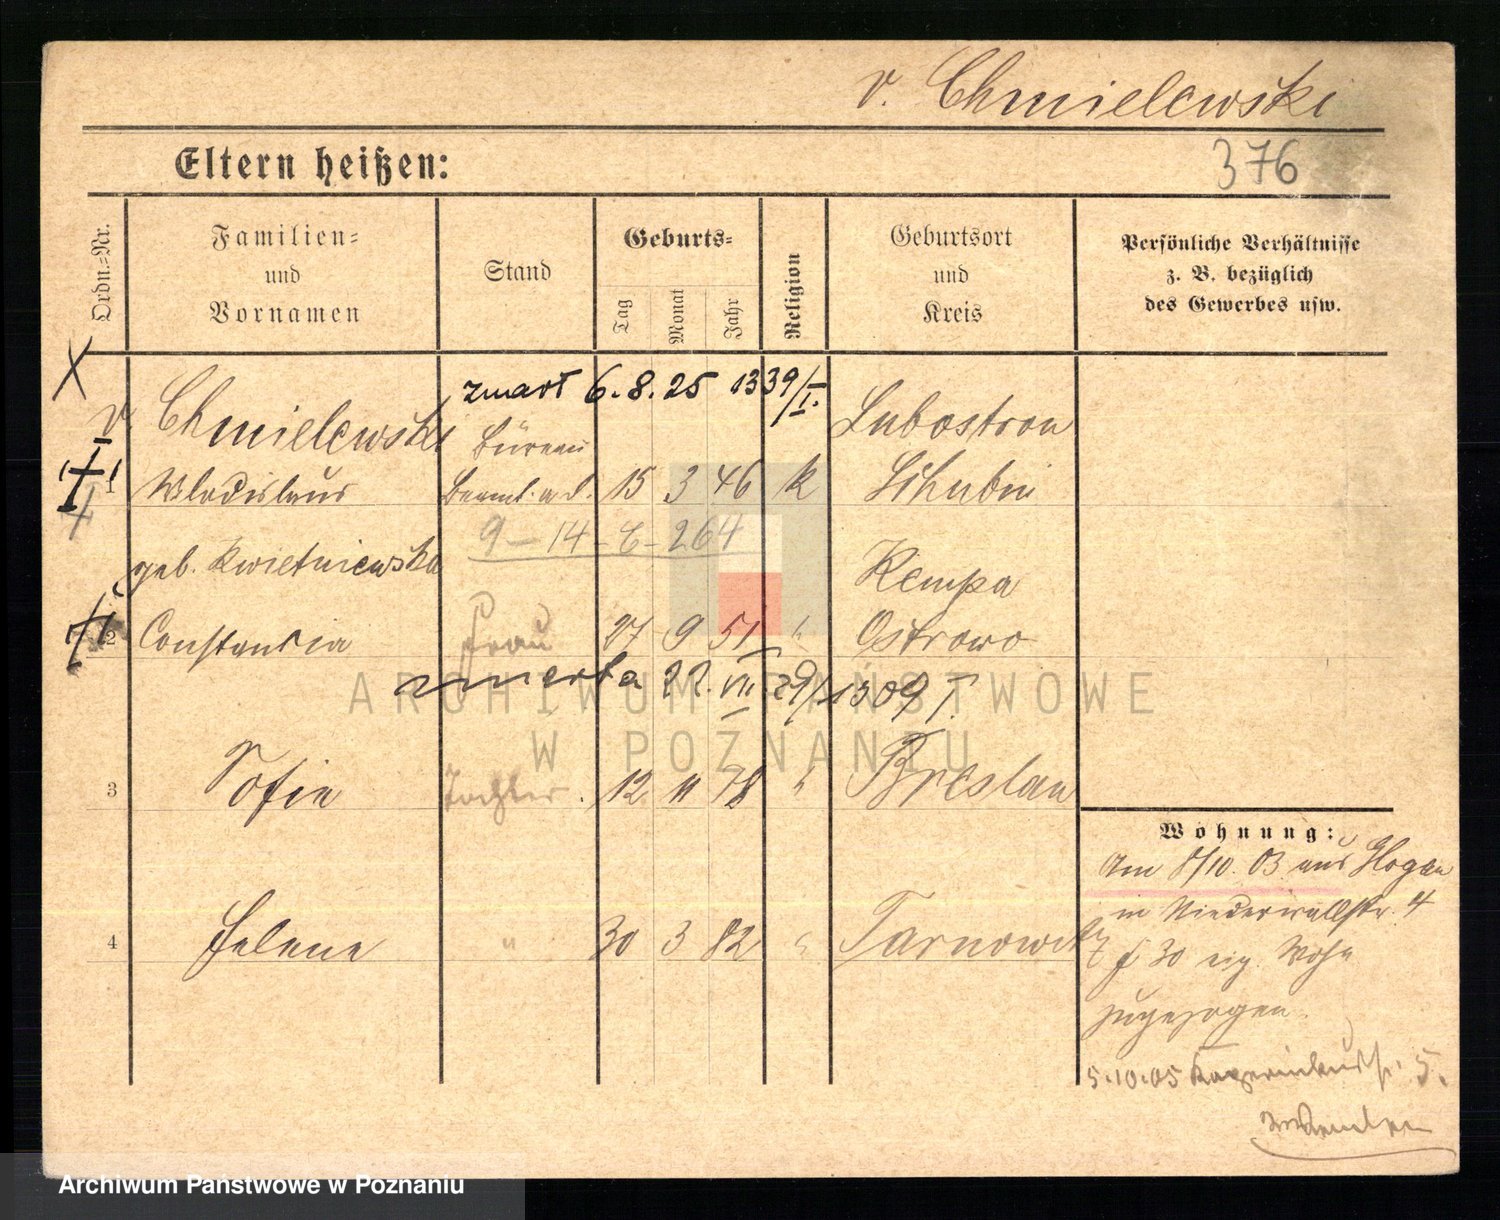 v. Chmielewski
Eltern heißen:
376
Ordn.=Nr.
Familien=
und
Vornamen
Stand
Geburts=
Tag
Monat
Jahr
Religion
Geburtsort
und
Kreis
Persönliche Verhältnisse
z. B. bezüglich
des Gewerbes usw.
X
zmarł 6.8.25 1339/I.
v. Chmielewski
Büreau
Lubostron
1
Wladislaus
Beamt. a. d.
15 3 46 k
Schubin
9-14-6-264
geb. Kwietniewska
Kempa
2
Constancia
Frau
27 9 51 "
Ostrowo
zmarła 22. VII. 29/1309 I.
3
Sofie
Tochter.
12 11 78 "
Breslau
4
Helene
"
30 3 82 "
Tarnowitz
Wohnung:
Am 8/10. 03 aus Glogau
in Niederwallstr. 4
f 30 eig. Wohn
zugezogen.
5.10.05
5.
ARCHIWUM PAŃSTWOWE
W POZNANIU
Archiwum Państwowe w Poznaniu